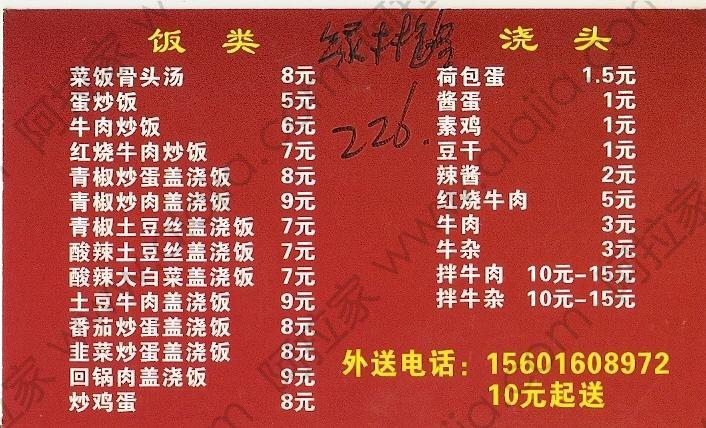 饭类
菜饭骨头汤 8元
蛋炒饭 5元
牛肉炒饭 6元
红烧牛肉炒饭 7元
青椒炒蛋盖浇饭 8元
青椒炒肉盖浇饭 9元
青椒土豆丝盖浇饭 7元
酸辣土豆丝盖浇饭 7元
酸辣大白菜盖浇饭 7元
土豆牛肉盖浇饭 9元
番茄炒蛋盖浇饭 8元
韭菜炒蛋盖浇饭 8元
回锅肉盖浇饭 9元
炒鸡蛋 8元
226.
浇头
荷包蛋 1.5元
酱蛋 1元
素鸡 1元
豆干 1元
辣酱 2元
红烧牛肉 5元
牛肉 3元
牛杂 3元
拌牛肉 10元-15元
拌牛杂 10元-15元
外送电话：15601608972
10元起送
阿拉家 www.alajia.com